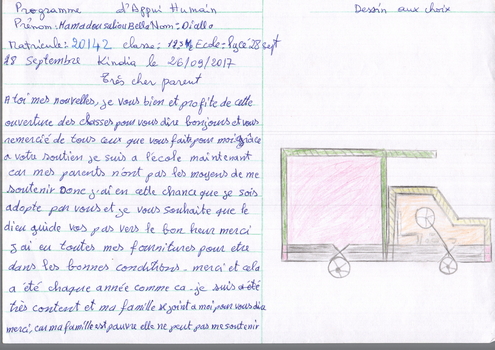 Programme d'Appui Humain
Dessin aux choix
Prénom: Mamadou saliou Bella Nom: Diallo
Matricule: 20142 classe: Ecole: lycée 28 sept
28 Septembre Kindia le 26/09/2017
très cher parent
A toi mes nouvelles, je vous bien et profite de cette
ouverture des classes pour vous dire bonjours et vous
remercié de tous ceux que vous faits pour moi, grâce
a votre soutien je suis a l'ecole maintenant
car mes parents n'ont pas les moyens de me
soutenir. Donc j'ai eu cette chance que je sois
adopte par vous et je vous souhaite que le
dieu guide vos pas vers le bon heur merci
j'ai eu toutes mes fournitures pour etre
dans les bonnes conditions. merci et cela
a été chaque année comme ca. je suis
très content et ma famille se joint a moi pour vous dire
merci, car ma famille est pauvre elle ne peut pas me soutenir